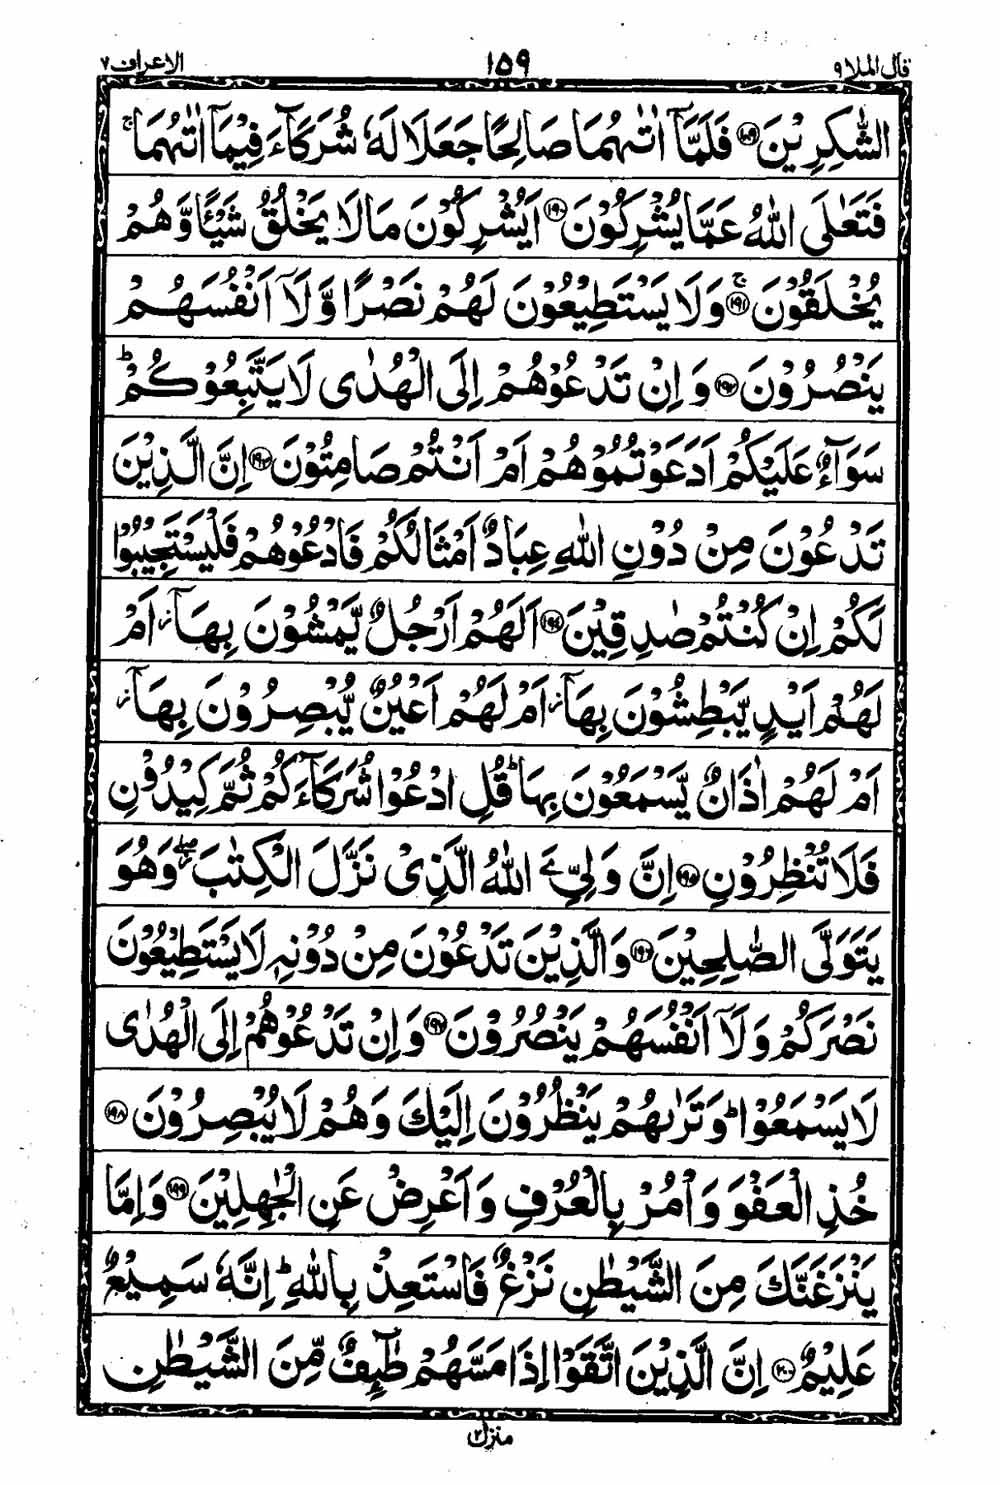 قال الملا ٩ ١٥٩ الاعراف ٧
الشّٰكِرِيْنَ ﴿۱۸۹﴾ فَلَمَّاۤ اٰتٰىهُمَا صَالِحًا جَعَلَا لَهٗ شُرَكَآءَ فِيْمَاۤ اٰتٰىهُمَا ۚ
فَتَعٰلَى اللّٰهُ عَمَّا يُشْرِكُوْنَ ﴿۱۹۰﴾ اَيُشْرِكُوْنَ مَا لَا يَخْلُقُ شَيْـًٔا وَّ هُمْ
يُخْلَقُوْنَ ۚ﴿۱۹۱﴾ وَلَا يَسْتَطِيْعُوْنَ لَهُمْ نَصْرًا وَّ لَاۤ اَنْفُسَهُمْ
يَنْصُرُوْنَ ﴿۱۹۲﴾ وَ اِنْ تَدْعُوْهُمْ اِلَى الْهُدٰى لَا يَتَّبِعُوْكُمْ ؕ
سَوَآءٌ عَلَيْكُمْ اَدَعَوْتُمُوْهُمْ اَمْ اَنْتُمْ صَامِتُوْنَ ﴿۱۹۳﴾ اِنَّ الَّذِيْنَ
تَدْعُوْنَ مِنْ دُوْنِ اللّٰهِ عِبَادٌ اَمْثَالُكُمْ فَادْعُوْهُمْ فَلْيَسْتَجِيْبُوْا
لَكُمْ اِنْ كُنْتُمْ صٰدِقِيْنَ ﴿۱۹۴﴾ اَلَهُمْ اَرْجُلٌ يَّمْشُوْنَ بِهَاۤ ؗ اَمْ
لَهُمْ اَيْدٍ يَّبْطِشُوْنَ بِهَاۤ ؗ اَمْ لَهُمْ اَعْيُنٌ يُّبْصِرُوْنَ بِهَاۤ ؗ
اَمْ لَهُمْ اٰذَانٌ يَّسْمَعُوْنَ بِهَا ؕ قُلِ ادْعُوْا شُرَكَآءَكُمْ ثُمَّ كِيْدُوْنِ
فَلَا تُنْظِرُوْنِ ﴿۱۹۵﴾ اِنَّ وَلِيِّ ےَ اللّٰهُ الَّذِيْ نَزَّلَ الْكِتٰبَ ۖؗ وَهُوَ
يَتَوَلَّى الصّٰلِحِيْنَ ﴿۱۹۶﴾ وَالَّذِيْنَ تَدْعُوْنَ مِنْ دُوْنِهٖ لَا يَسْتَطِيْعُوْنَ
نَصْرَكُمْ وَلَاۤ اَنْفُسَهُمْ يَنْصُرُوْنَ ﴿۱۹۷﴾ وَاِنْ تَدْعُوْهُمْ اِلَى الْهُدٰى
لَا يَسْمَعُوْا ؕ وَتَرٰىهُمْ يَنْظُرُوْنَ اِلَيْكَ وَهُمْ لَا يُبْصِرُوْنَ ﴿۱۹۸﴾
خُذِ الْعَفْوَ وَاْمُرْ بِالْعُرْفِ وَاَعْرِضْ عَنِ الْجٰهِلِيْنَ ﴿۱۹۹﴾ وَاِمَّا
يَنْزَغَنَّكَ مِنَ الشَّيْطٰنِ نَزْغٌ فَاسْتَعِذْ بِاللّٰهِ ؕ اِنَّهٗ سَمِيْعٌ
عَلِيْمٌ ﴿۲۰۰﴾ اِنَّ الَّذِيْنَ اتَّقَوْا اِذَا مَسَّهُمْ طٰٓىِٕفٌ مِّنَ الشَّيْطٰنِ
منزل ٢